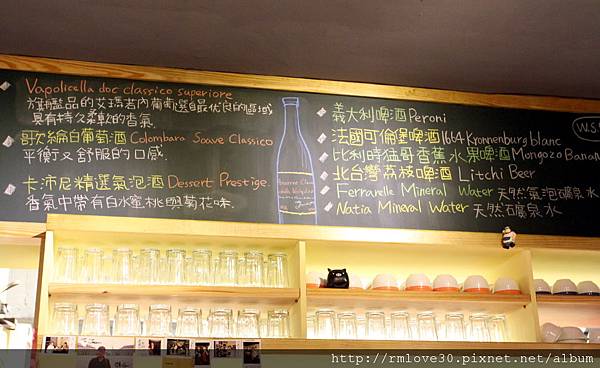 Vapolicella doc classico superiore
旗艦藍品的艾瑪若內葡萄選自最优良的區域
具有持久柔軟的香氣.
歌綸白葡萄酒 Colombara Soave Classico
平衡又舒服的口感.
卡沛尼精選氣泡酒 Dessert Prestige.
香氣中帶有白水蜜桃與菊花味.
義大利啤酒 Peroni
法國可倫堡啤酒 1664 Kronnenburg blanc
比利時猛哥香蕉水果啤酒 Mongozo Banana
北台灣荔枝啤酒 Litchi Beer
Ferrarelle Mineral Water 天然氣泡礦泉水
Natia Mineral Water 天然礦泉水
W.S
http://rmlove30.pixnet.net/album